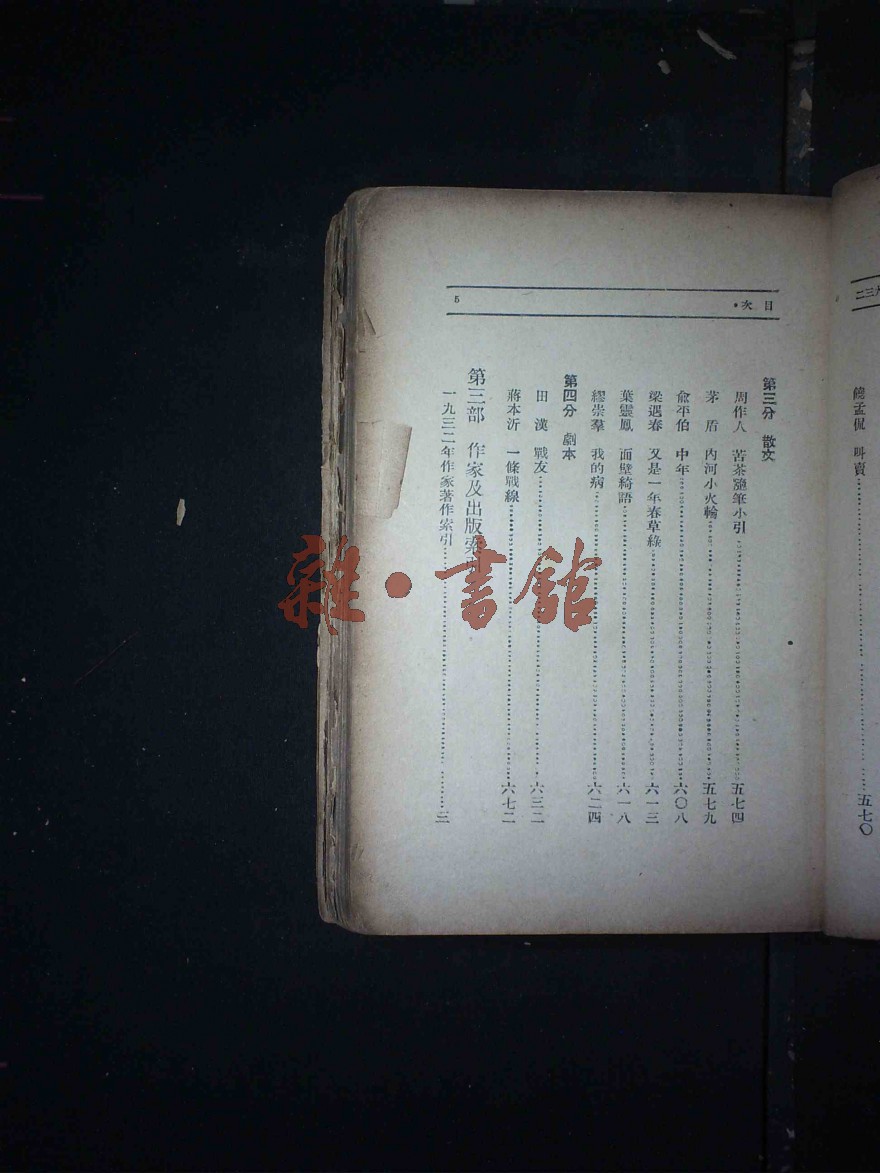 饒孟侃 叫賣……五七〇
目次 5
第三分 散文
周作人 苦茶隨筆小引……五七四
茅盾 內河小火輪……五七九
俞平伯 中年……六〇八
梁遇春 又是一年春草綠……六一三
葉靈鳳 面壁綺語……六一八
繆崇羣 我的病……六二四
第四分 劇本
田漢 戰友……六三二
蔣本沂 一條戰線……六七二
第三部 作家及出版索引
一九三二年作家著作索引……三
雜·書館